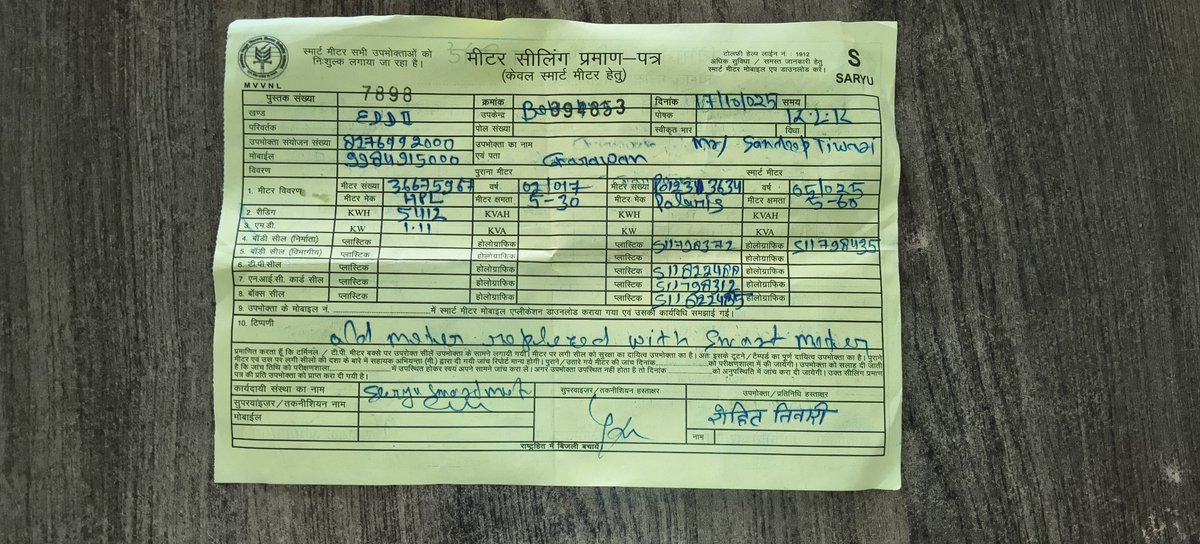 स्मार्ट मीटर सभी उपभोक्ताओं को
निःशुल्क लगाया जा रहा है।
MVVNL
मीटर सीलिंग प्रमाण–पत्र
(केवल स्मार्ट मीटर हेतु)
टोलफ्री हेल्प लाईन नं. : 1912
अधिक सुविधा / समस्त जानकारी हेतु
स्मार्ट मीटर मोबाइल एप डाउनलोड करें।
S
SARYU
पुस्तक संख्या 7898 क्रमांक 394853 दिनांक 17/10/025 समय
खण्ड EDD II उपकेन्द्र पोषक
परिवर्तक पोल संख्या स्वीकृत भार विधा
उपभोक्ता संयोजन संख्या 8276992000 उपभोक्ता का नाम Mr/ Sandeep Tiwari
मोबाईल 9984915000 एवं पता Garawan
विवरण पुराना मीटर स्मार्ट मीटर
1. मीटर विवरण मीटर संख्या 36675967 वर्ष 02/017 मीटर संख्या वर्ष 05/025
मीटर मेक HPL मीटर क्षमता 5-30 मीटर मेक Polaris मीटर क्षमता 5-60
2. रीडिंग KWH 5412 KVAH KWH KVAH
3. एम.डी. KW 1.11 KVA KW KVA
4. बॉडी सील (निर्माता) प्लास्टिक होलोग्राफिक प्लास्टिक S11798372 होलोग्राफिक S11798435
5. बॉडी सील (विभागीय) प्लास्टिक होलोग्राफिक प्लास्टिक होलोग्राफिक
6. टी.पी. सील प्लास्टिक होलोग्राफिक प्लास्टिक होलोग्राफिक
7. एन.आई.सी. कार्ड सील प्लास्टिक होलोग्राफिक प्लास्टिक S11798312 होलोग्राफिक
8. बॉक्स सील प्लास्टिक होलोग्राफिक प्लास्टिक होलोग्राफिक
9. उपभोक्ता के मोबाइल नं. में स्मार्ट मीटर मोबाइल एप्लीकेशन डाउनलोड कराया गया एवं उसकी कार्यविधि समझाई गई।
10. टिप्पणी old meter replaced with Smart meter
प्रमाणित करता हूँ कि टर्मिनल / टी.पी. मीटर बक्से पर उपरोक्त सीलें उपभोक्ता के सामने लगायी गयी। मीटर पर लगी सील को सुरक्षा का दायित्व उपभोक्ता का है। अतः इसके टूटने / टैम्पर्ड का पूर्ण दायित्व उपभोक्ता का है। पुराने
मीटर एवं उस पर लगी सीलों की दशा के बारे में सहायक अभियन्ता (मी.) द्वारा दी गयी जांच रिपोर्ट मान्य होगी। पुराने / उतारे गये मीटर की जांच दिनांक को परीक्षणशाला में की जायेगी। उपभोक्ता को सलाह दी जाती
है कि जांच तिथि को परीक्षणशाला में उपस्थित होकर स्वयं अपने सामने जांच करा लें। अगर उपभोक्ता उपस्थित नहीं होता है तो दिनांक को अनुपस्थिति में जांच करा दी जायेगी। उक्त सीलिंग प्रमाण
पत्र की प्रति उपभोक्ता को प्राप्त करा दी गयी है।
कार्यदायी संस्था का नाम सुपरवाइजर / तकनीशियन हस्ताक्षर उपभोक्ता / प्रतिनिधि हस्ताक्षर
सुपरवाइजर / तकनीशियन नाम
मोबाईल रोहित तिवारी
नाम
राष्ट्रहित में बिजली बचायें